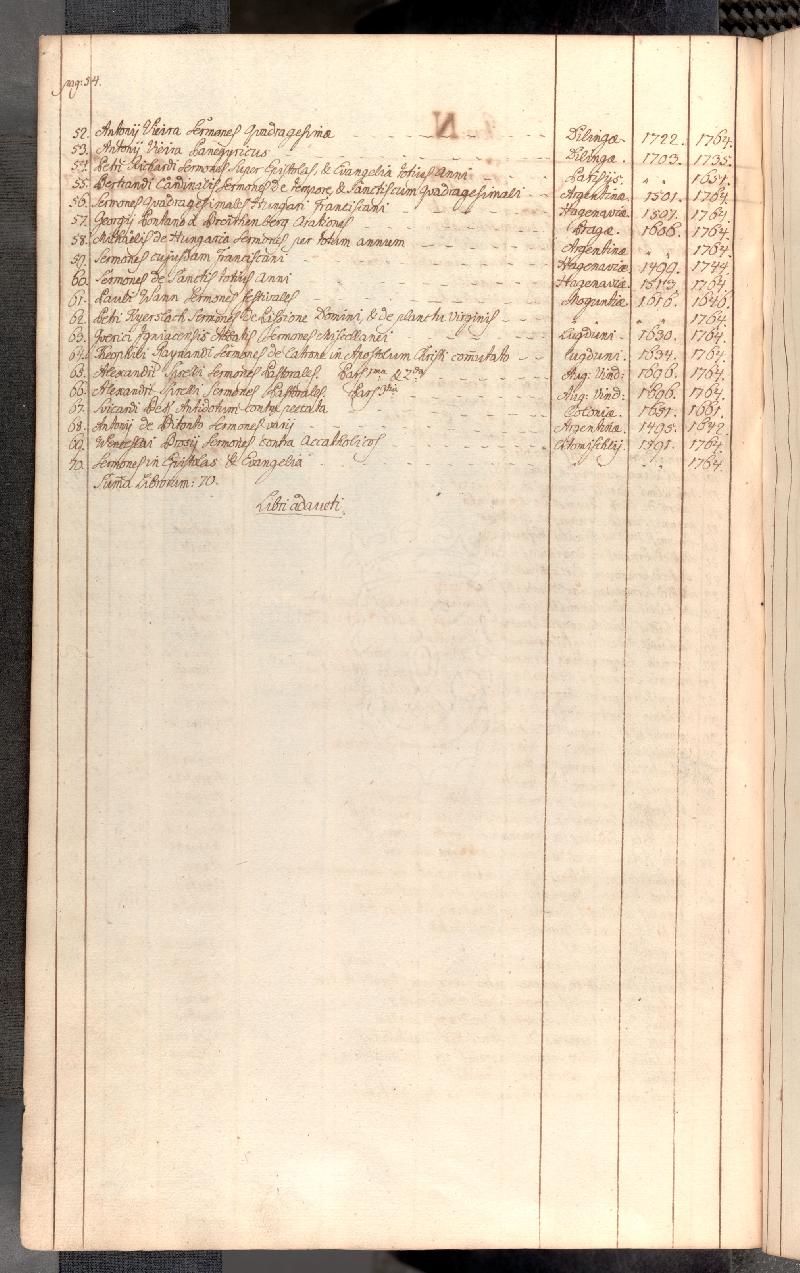 pag: 54.
N
52. Antonij Vieira Sermones Quadragesimæ Dilingæ. 1722. 1764.
53. Antonij Vieira Panegyricus Dilingæ. 1703. 1735.
54. Petri Richardi Sermones super Epistolas, & Evangelia totius Anni Parisijs. " " 1654.
55. Bertrandi Cardinalis Sermones de tempore, & Sanctis cum Quadragesimali Argentinæ. 1501. 1764.
56. Sermones Quadragesimales Hungari Franciscani Hagenaviæ. 1501. 1764.
57. Georgij Pontani à Breithenberg Orationes Pragæ. 1606. 1764.
58. Michaëlis de Hungaria Sermones per totum annum Argentinæ " " 1764.
59. Sermones cujusdam Franciscani Hagenaviæ. 1499. 1744.
60. Sermones de Sanctis totius Anni Hagenaviæ. 1513. 1764.
61. Pauli Wann Sermones festivales Moguntiæ 1616. 1646.
62. Petri Kyerslach Sermones de Passione Domini, & de planctu Virginis " " 1764.
63. Guerici Igniacensis Abbatis Sermones Miscellanei Lugduni. 1630. 1764.
64. Theophili Raynandi Sermones de latrone in Apostolum Christi comutato Lugduni. 1634. 1764.
65. Alexandri Sperelli Sermones Pastorales. Pars 1ma & 2da Aug: Vind: 1696. 1764.
66. Alexandri Sperelli Sermones Pastorales. Pars 3tia Aug: Vind: 1696. 1764.
67. Antidotum contra peccata Coloniæ. 1651. 1661.
68. Antonij de Bitonto Sermones varij Argentinæ. 1495. 1642.
69. Wenceslai Brosij Sermones contra Accatholicos Litomischlij. 1591. 1764.
70. Sermones in Epistolas & Evangelia " " 1764.
Suma Librorum: 70.
Libri adaucti.